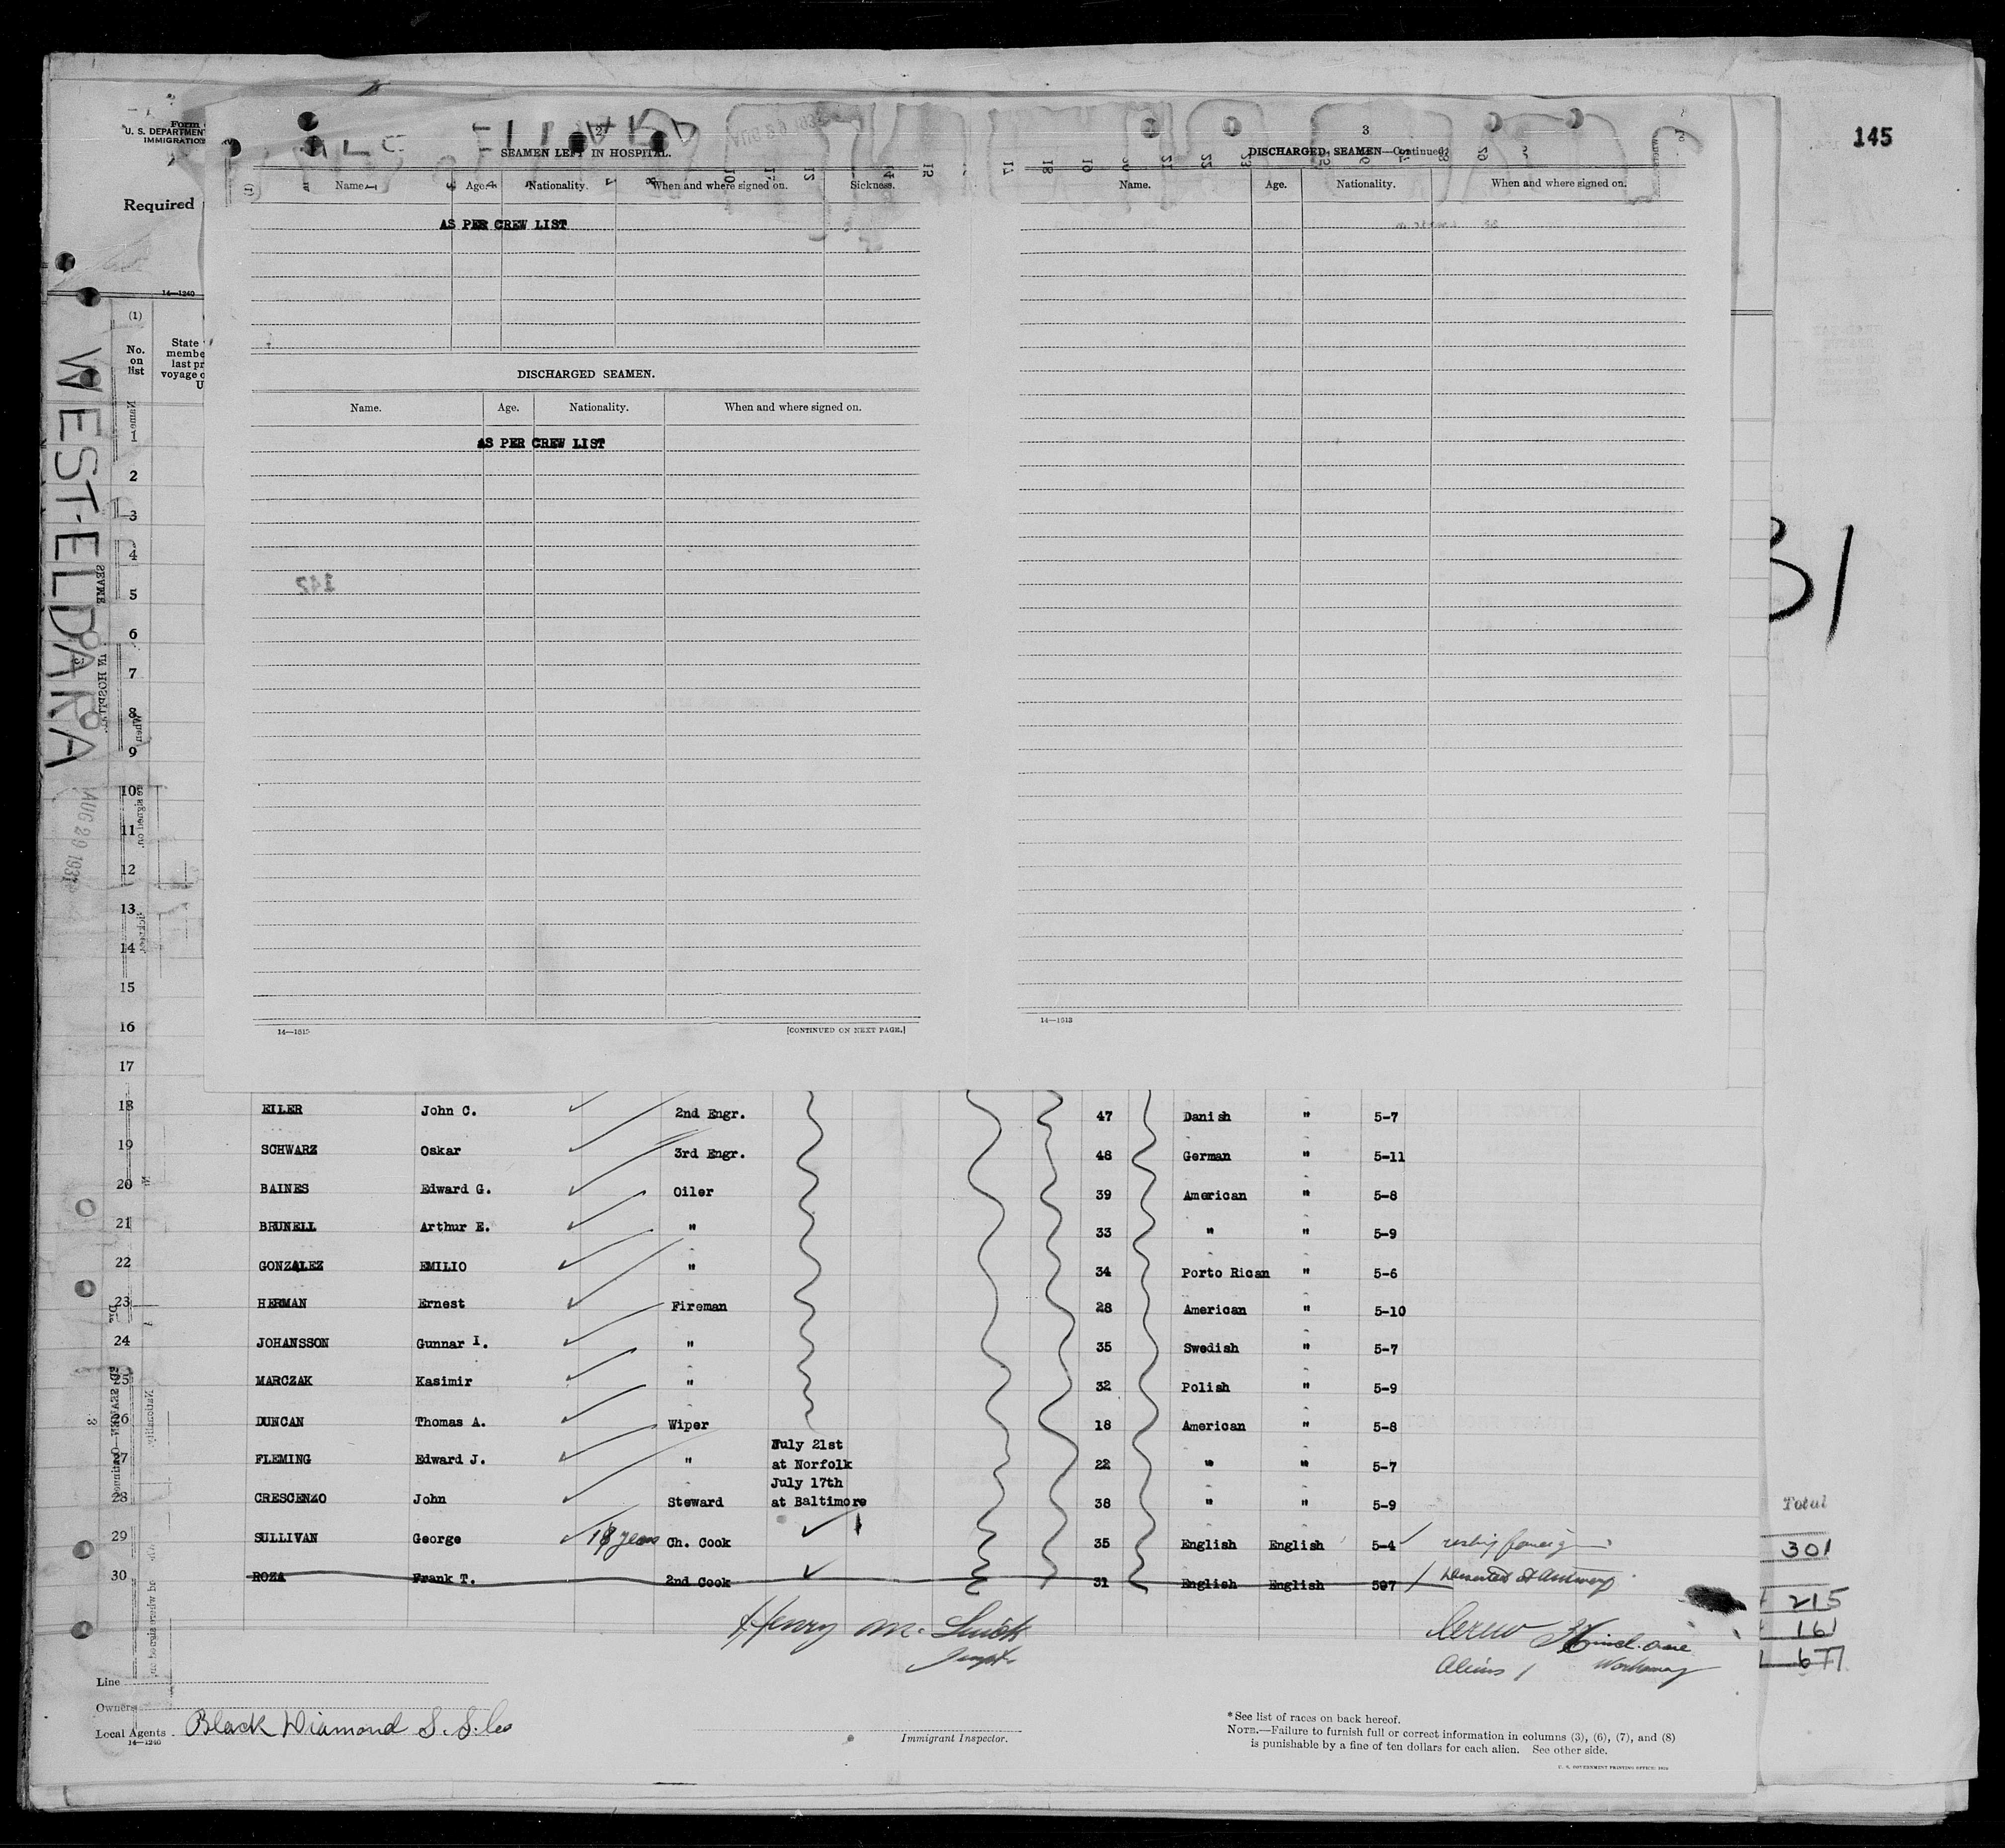 145
Form
U. S. DEPARTMENT
IMMIGRATION
Required
14—1240
2
SEAMEN LEFT IN HOSPITAL.
Name. Age. Nationality. When and where signed on. Sickness.
AS PER CREW LIST
DISCHARGED SEAMEN.
Name. Age. Nationality. When and where signed on.
AS PER CREW LIST
142
14—1515
[CONTINUED ON NEXT PAGE.]
3
DISCHARGED SEAMEN—Continued.
Name. Age. Nationality. When and where signed on.
14—1513
WEST-ELDARA
AUG 29 1931
31
(1)
No. on list
State
membe
last pr
voyage o
U
1
2
3
4
5
6
7
8
9
10
11
12
13
14
15
16
17
18 EILER John C. 2nd Engr. 47 Danish " 5-7
19 SCHWARZ Oskar 3rd Engr. 48 German " 5-11
20 BAINES Edward G. Oiler 39 American " 5-8
21 BRUNELL Arthur E. " 33 " " 5-9
22 GONZALEZ EMILIO " 34 Porto Rican " 5-6
23 HERMAN Ernest Fireman 28 American " 5-10
24 JOHANSSON Gunnar I. " 35 Swedish " 5-7
25 MARCZAK Kasimir " 32 Polish " 5-9
26 DUNCAN Thomas A. Wiper 18 American " 5-8
27 FLEMING Edward J. " July 21st at Norfolk 22 " " 5-7
28 CRESCENZO John Steward July 17th at Baltimore 38 " " 5-9
29 SULLIVAN George 18 years Ch. Cook 35 English English 5-4
30 ROZA Frank T. 2nd Cook 31 English English 507 Deserted at Antwerp
Total
301
215
161
677
Henry M.
Crew
Aliens 1 Workaway
Line
Owners
Local Agents Black Diamond S. S. Co
14—1240
Immigrant Inspector.
*See list of races on back hereof.
NOTE.—Failure to furnish full or correct information in columns (3), (6), (7), and (8)
is punishable by a fine of ten dollars for each alien. See other side.
U. S. GOVERNMENT PRINTING OFFICE